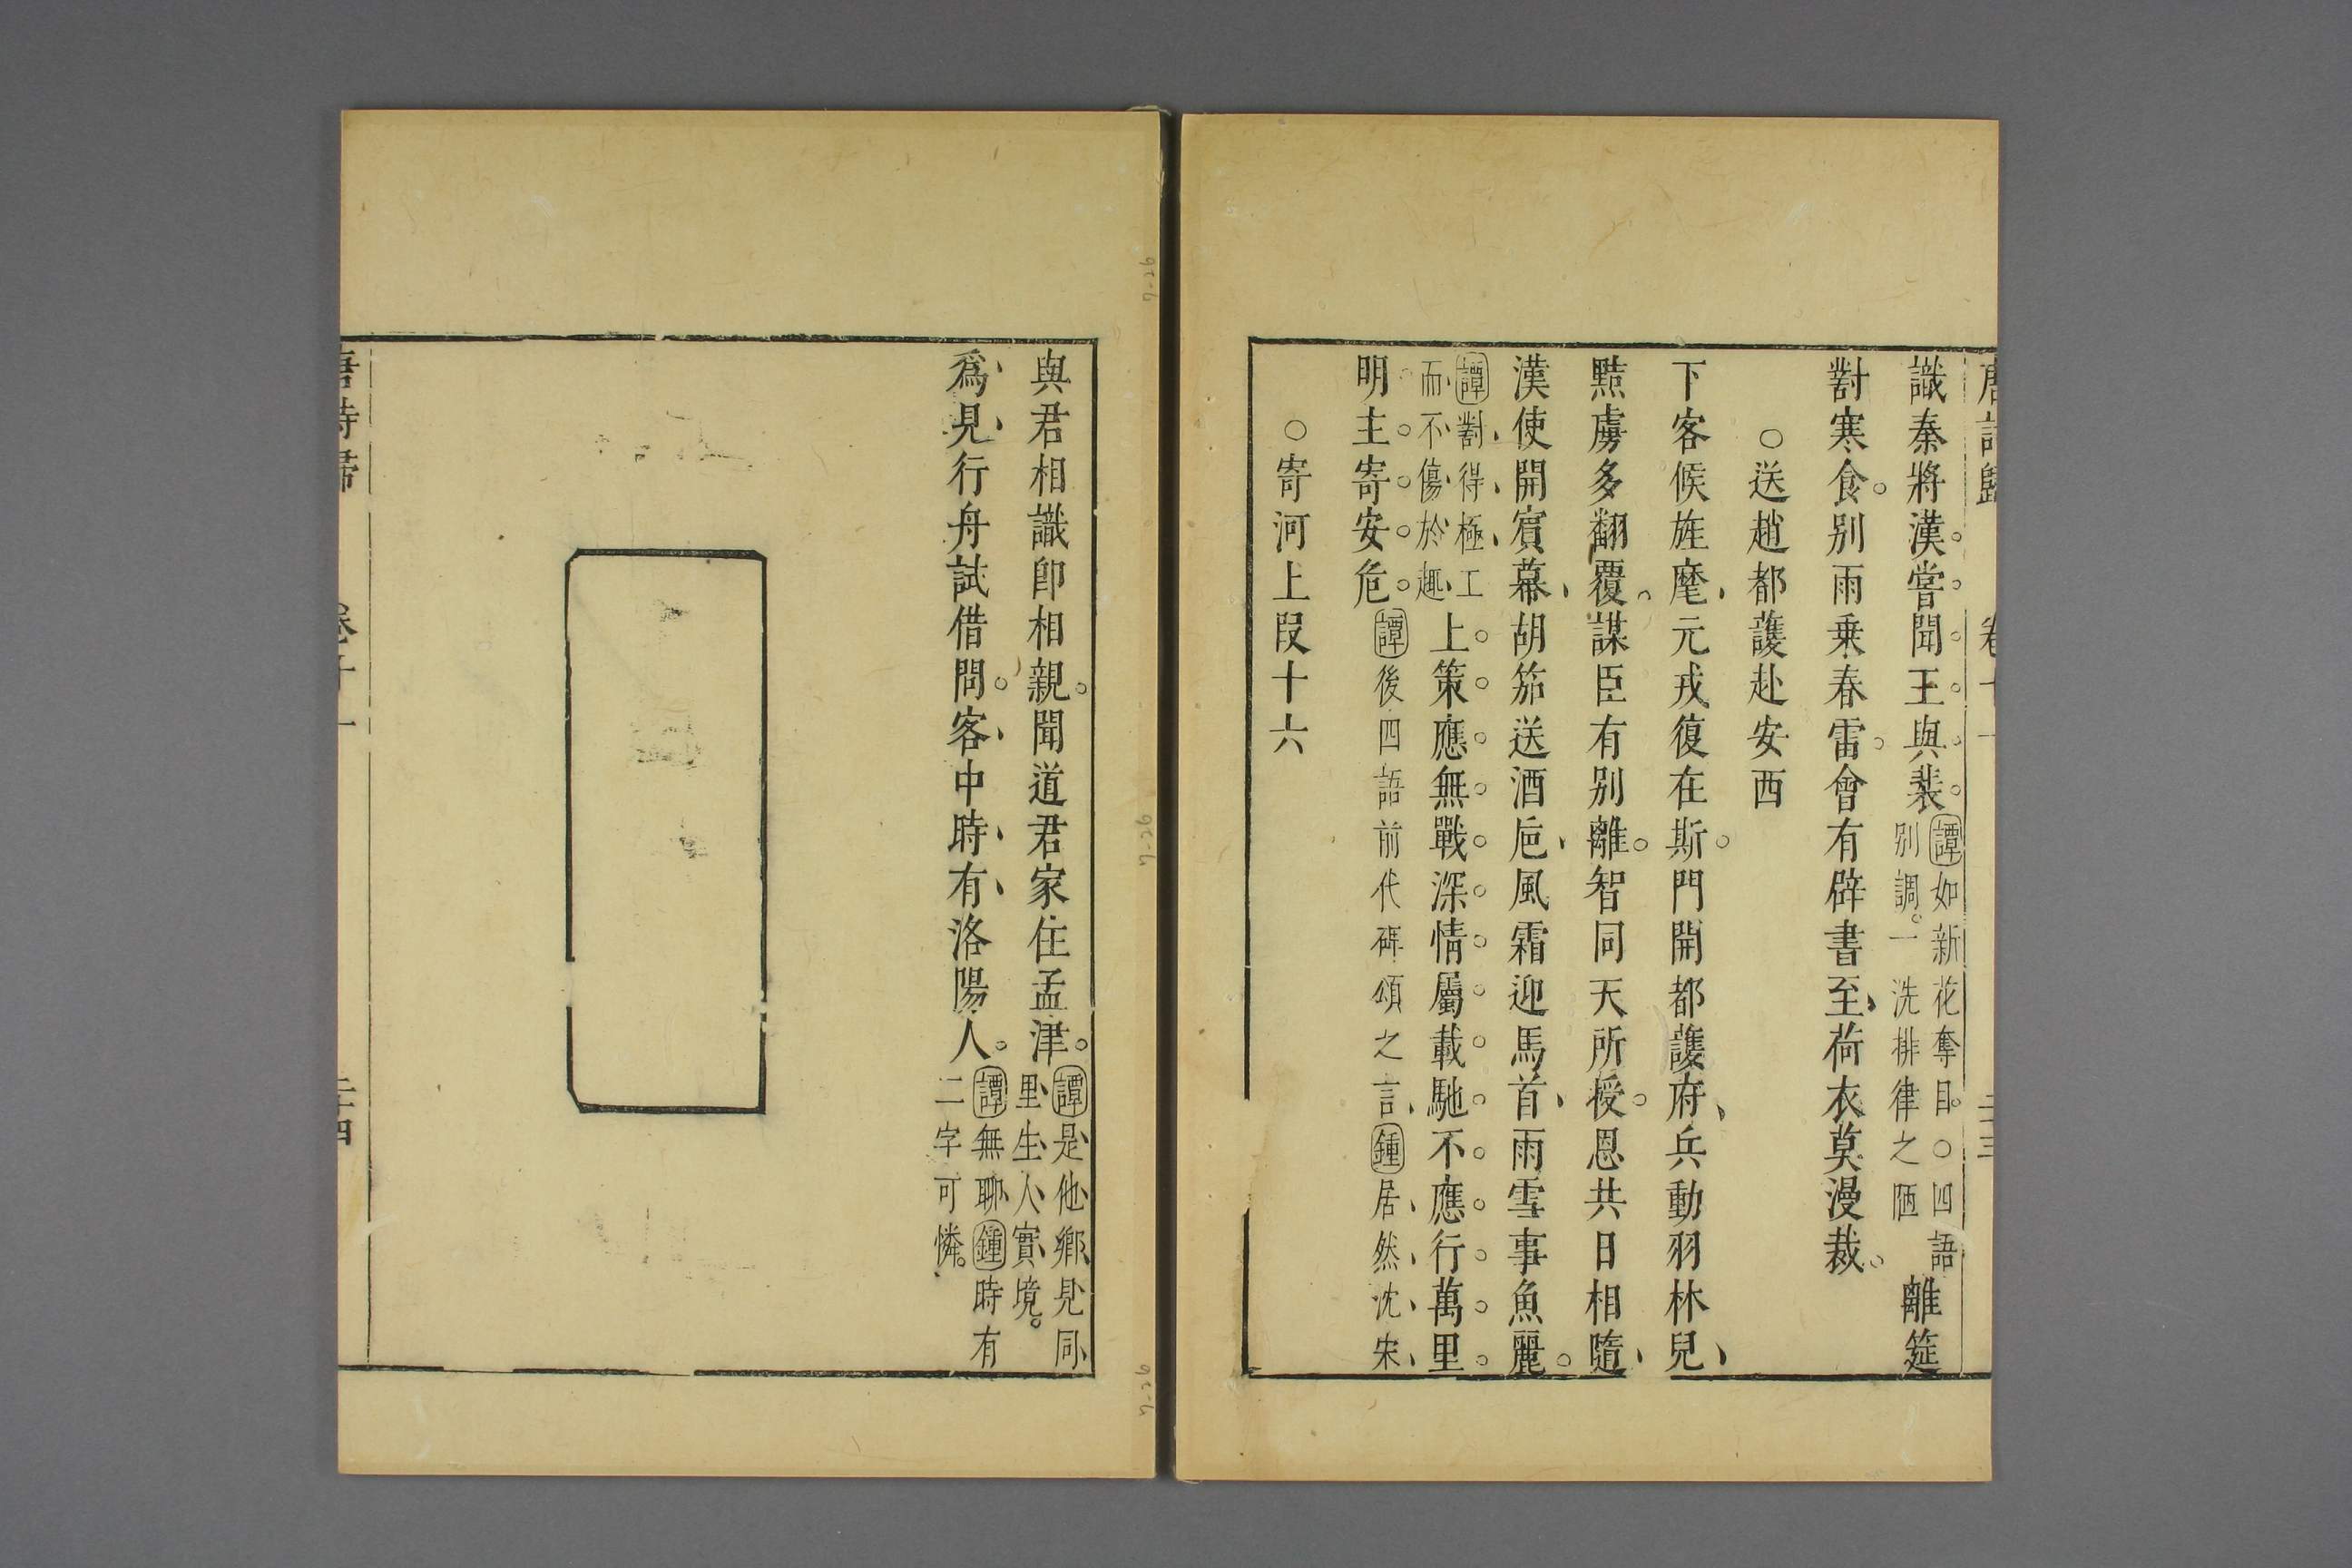 識秦將漢嘗聞王與裴譚如新花奪目○四語別調一洗排律之陋離筵
對寒食別雨乗春雷會有辟書至荷衣莫漫裁
○送趙都護赴安西
下客候旌麾元戎復在斯門開都護府兵動羽林兒
黠虜多翻覆謀臣有別離智同天所授恩共日相隨
漢使開賓幕胡笳送酒巵風霜迎馬首雨雪事魚麗
譚對得極工而不傷於趣上策應無戰深情屬載馳不應行萬里
明主寄安危譚後四語前代碑頌之言鍾居然沈宋
○寄河上段十六
與君相識卽相親聞道君家住孟津譚是他鄉見同里生人實境
爲見行舟試借問客中時有洛陽人譚無聊鍾時有二字可憐
唐詩歸 卷十一 二十四